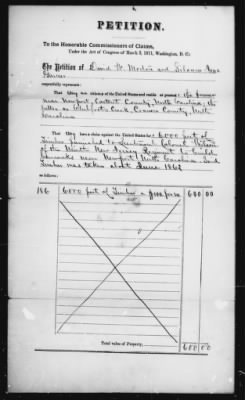 PETITION.
To the Honorable Commissioners of Claims,
Under the Act of Congress of March 3, 1871, Washington, D. C.:
The Petition of David W. Morton and
respectfully represents:
That they are citizens of the United States and reside at present: the former
near Newport, Carteret County, North Carolina; the
latter on Creek, Craven County, North
Carolina
That they have a claim against the United States for 6000 feet of
Timber furnished to Lieutenant Colonel
of the Ninth New Jersey Regiment to build
barracks near Newport, North Carolina. Said
Timber was taken about June 1862
as follows:
186 6000 feet of Timber 600 00
Total value of Property, 600 00